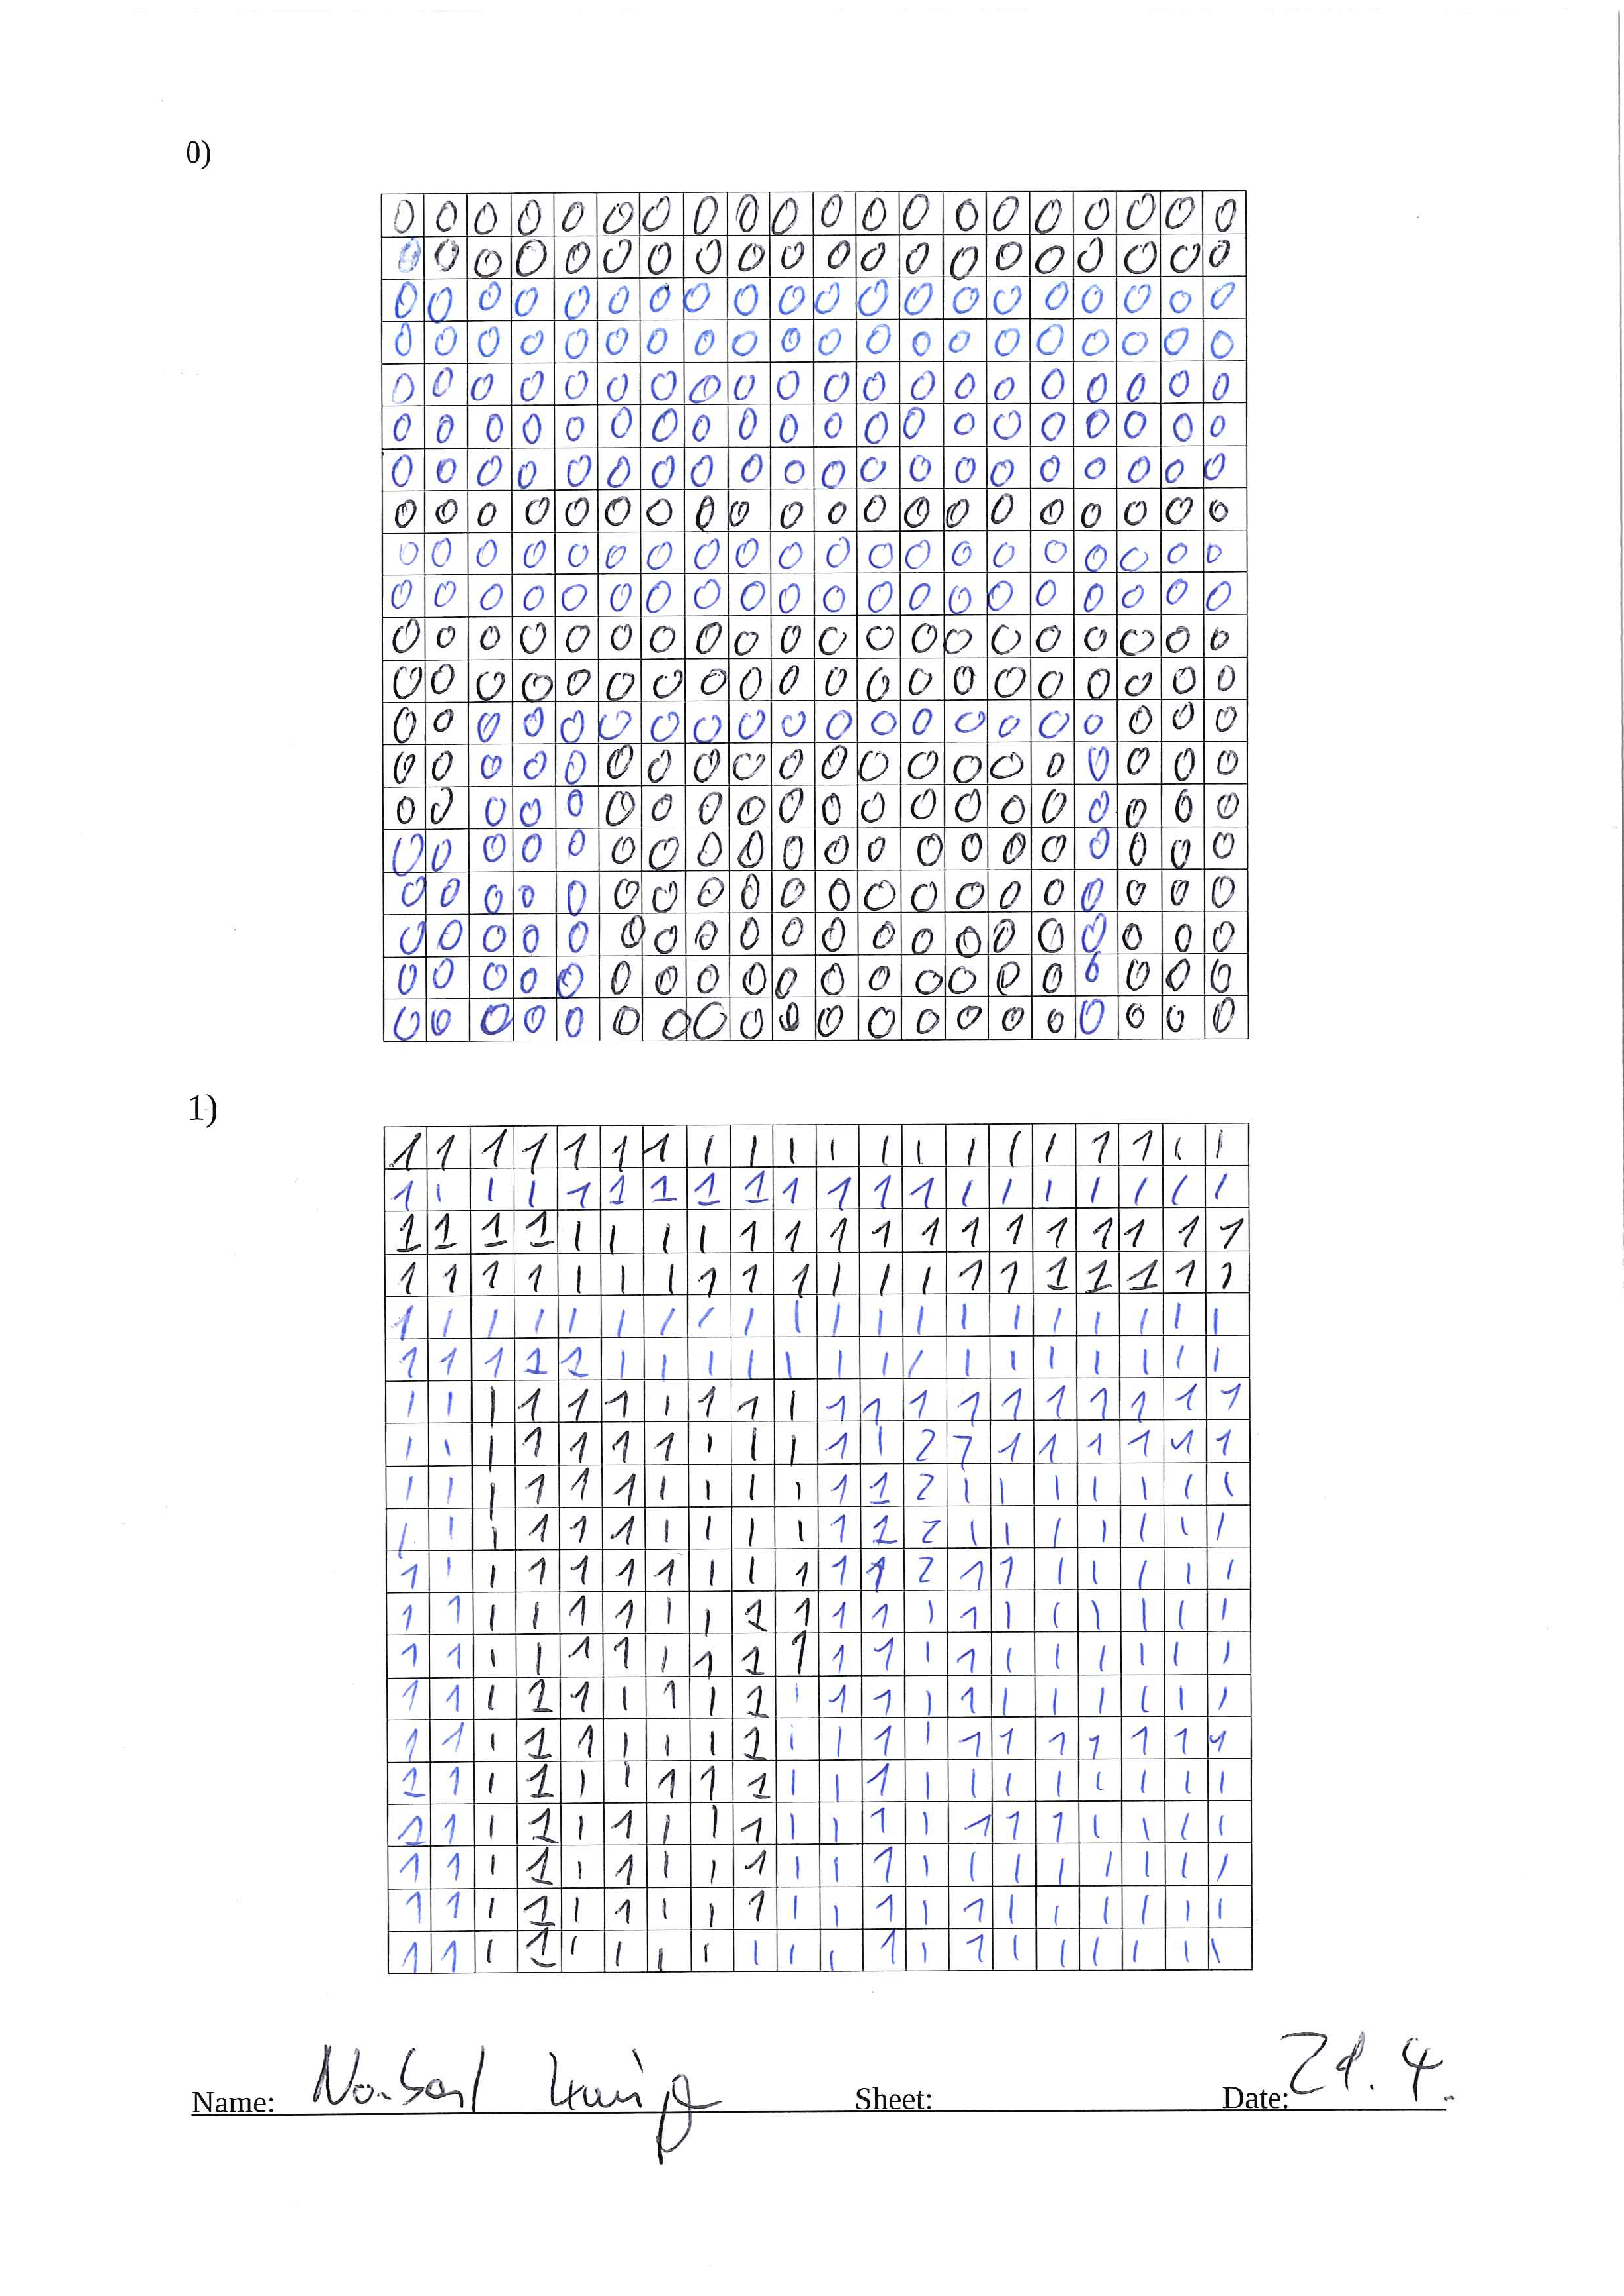 0)
0 0 0 0 0 0 0 0 0 0 0 0 0 0 0 0 0 0 0 0
0 0 0 0 0 0 0 0 0 0 0 0 0 0 0 0 0 0 0 0
0 0 0 0 0 0 0 0 0 0 0 0 0 0 0 0 0 0 0 0
0 0 0 0 0 0 0 0 0 0 0 0 0 0 0 0 0 0 0 0
0 0 0 0 0 0 0 0 0 0 0 0 0 0 0 0 0 0 0 0
0 0 0 0 0 0 0 0 0 0 0 0 0 0 0 0 0 0 0 0
0 0 0 0 0 0 0 0 0 0 0 0 0 0 0 0 0 0 0 0
0 0 0 0 0 0 0 0 0 0 0 0 0 0 0 0 0 0 0 0
0 0 0 0 0 0 0 0 0 0 0 0 0 0 0 0 0 0 0 0
0 0 0 0 0 0 0 0 0 0 0 0 0 0 0 0 0 0 0 0
0 0 0 0 0 0 0 0 0 0 0 0 0 0 0 0 0 0 0 0
0 0 0 0 0 0 0 0 0 0 0 0 0 0 0 0 0 0 0 0
0 0 0 0 0 0 0 0 0 0 0 0 0 0 0 0 0 0 0 0
0 0 0 0 0 0 0 0 0 0 0 0 0 0 0 0 0 0 0 0
0 0 0 0 0 0 0 0 0 0 0 0 0 0 0 0 0 0 0 0
0 0 0 0 0 0 0 0 0 0 0 0 0 0 0 0 0 0 0 0
0 0 0 0 0 0 0 0 0 0 0 0 0 0 0 0 0 0 0 0
0 0 0 0 0 0 0 0 0 0 0 0 0 0 0 0 0 0 0 0
0 0 0 0 0 0 0 0 0 0 0 0 0 0 0 0 6 0 0 0
0 0 0 0 0 0 0 0 0 0 0 0 0 0 0 0 0 0 0 0
1)
1 1 1 1 1 1 1 1 1 1 1 1 1 1 1 1 1 1 1 1
1 1 1 1 1 1 1 1 1 1 1 1 1 1 1 1 1 1 1 1
1 1 1 1 1 1 1 1 1 1 1 1 1 1 1 1 1 1 1 1
1 1 1 1 1 1 1 1 1 1 1 1 1 1 1 1 1 1 1 1
1 1 1 1 1 1 1 1 1 1 1 1 1 1 1 1 1 1 1 1
1 1 1 1 1 1 1 1 1 1 1 1 1 1 1 1 1 1 1 1
1 1 1 1 1 1 1 1 1 1 1 1 1 1 1 1 1 1 1 1
1 1 1 1 1 1 1 1 1 1 1 1 2 7 1 1 1 1 1 1
1 1 1 1 1 1 1 1 1 1 1 1 2 1 1 1 1 1 1 1
1 1 1 1 1 1 1 1 1 1 1 1 2 1 1 1 1 1 1 1
1 1 1 1 1 1 1 1 1 1 1 1 2 1 1 1 1 1 1 1
1 1 1 1 1 1 1 1 1 1 1 1 1 1 1 1 1 1 1 1
1 1 1 1 1 1 1 1 1 1 1 1 1 1 1 1 1 1 1 1
1 1 1 1 1 1 1 1 1 1 1 1 1 1 1 1 1 1 1 1
1 1 1 1 1 1 1 1 1 1 1 1 1 1 1 1 1 1 1 1
1 1 1 1 1 1 1 1 1 1 1 1 1 1 1 1 1 1 1 1
1 1 1 1 1 1 1 1 1 1 1 1 1 1 1 1 1 1 1 1
1 1 1 1 1 1 1 1 1 1 1 1 1 1 1 1 1 1 1 1
1 1 1 1 1 1 1 1 1 1 1 1 1 1 1 1 1 1 1 1
1 1 1 1 1 1 1 1 1 1 1 1 1 1 1 1 1 1 1 1
Name: Sheet: Date: 21. 4.